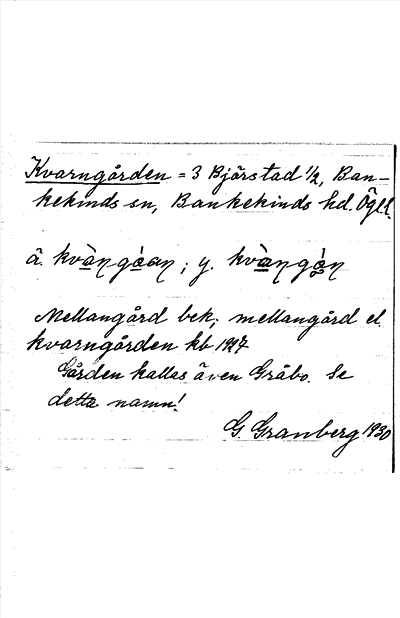 Kvarngården = 3 Bjärstad 1/2, Ban-
kekinds sn, Bankekinds hd. Ögl.
ä. ; y.
Mellangård bek; mellangård el.
kvarngården kb 1917
Gården kallas även Gråbo. Se
detta namn!
G. Granberg 1930